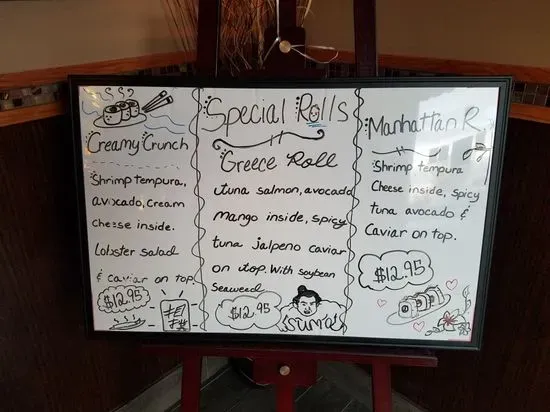 Creamy Crunch
Shrimp tempura,
avocado, Cream
cheese inside.
Lobster salad
& caviar on top.
$12.95
Special Rolls
Greece Roll
tuna salmon, avocado
mango inside, spicy
tuna jalpeno caviar
on top. With soybean
seaweed
$12.95
SUMO
Manhattan R
Shrimp tempura
Cheese inside, spicy
tuna avocado &
Caviar on top.
$12.95